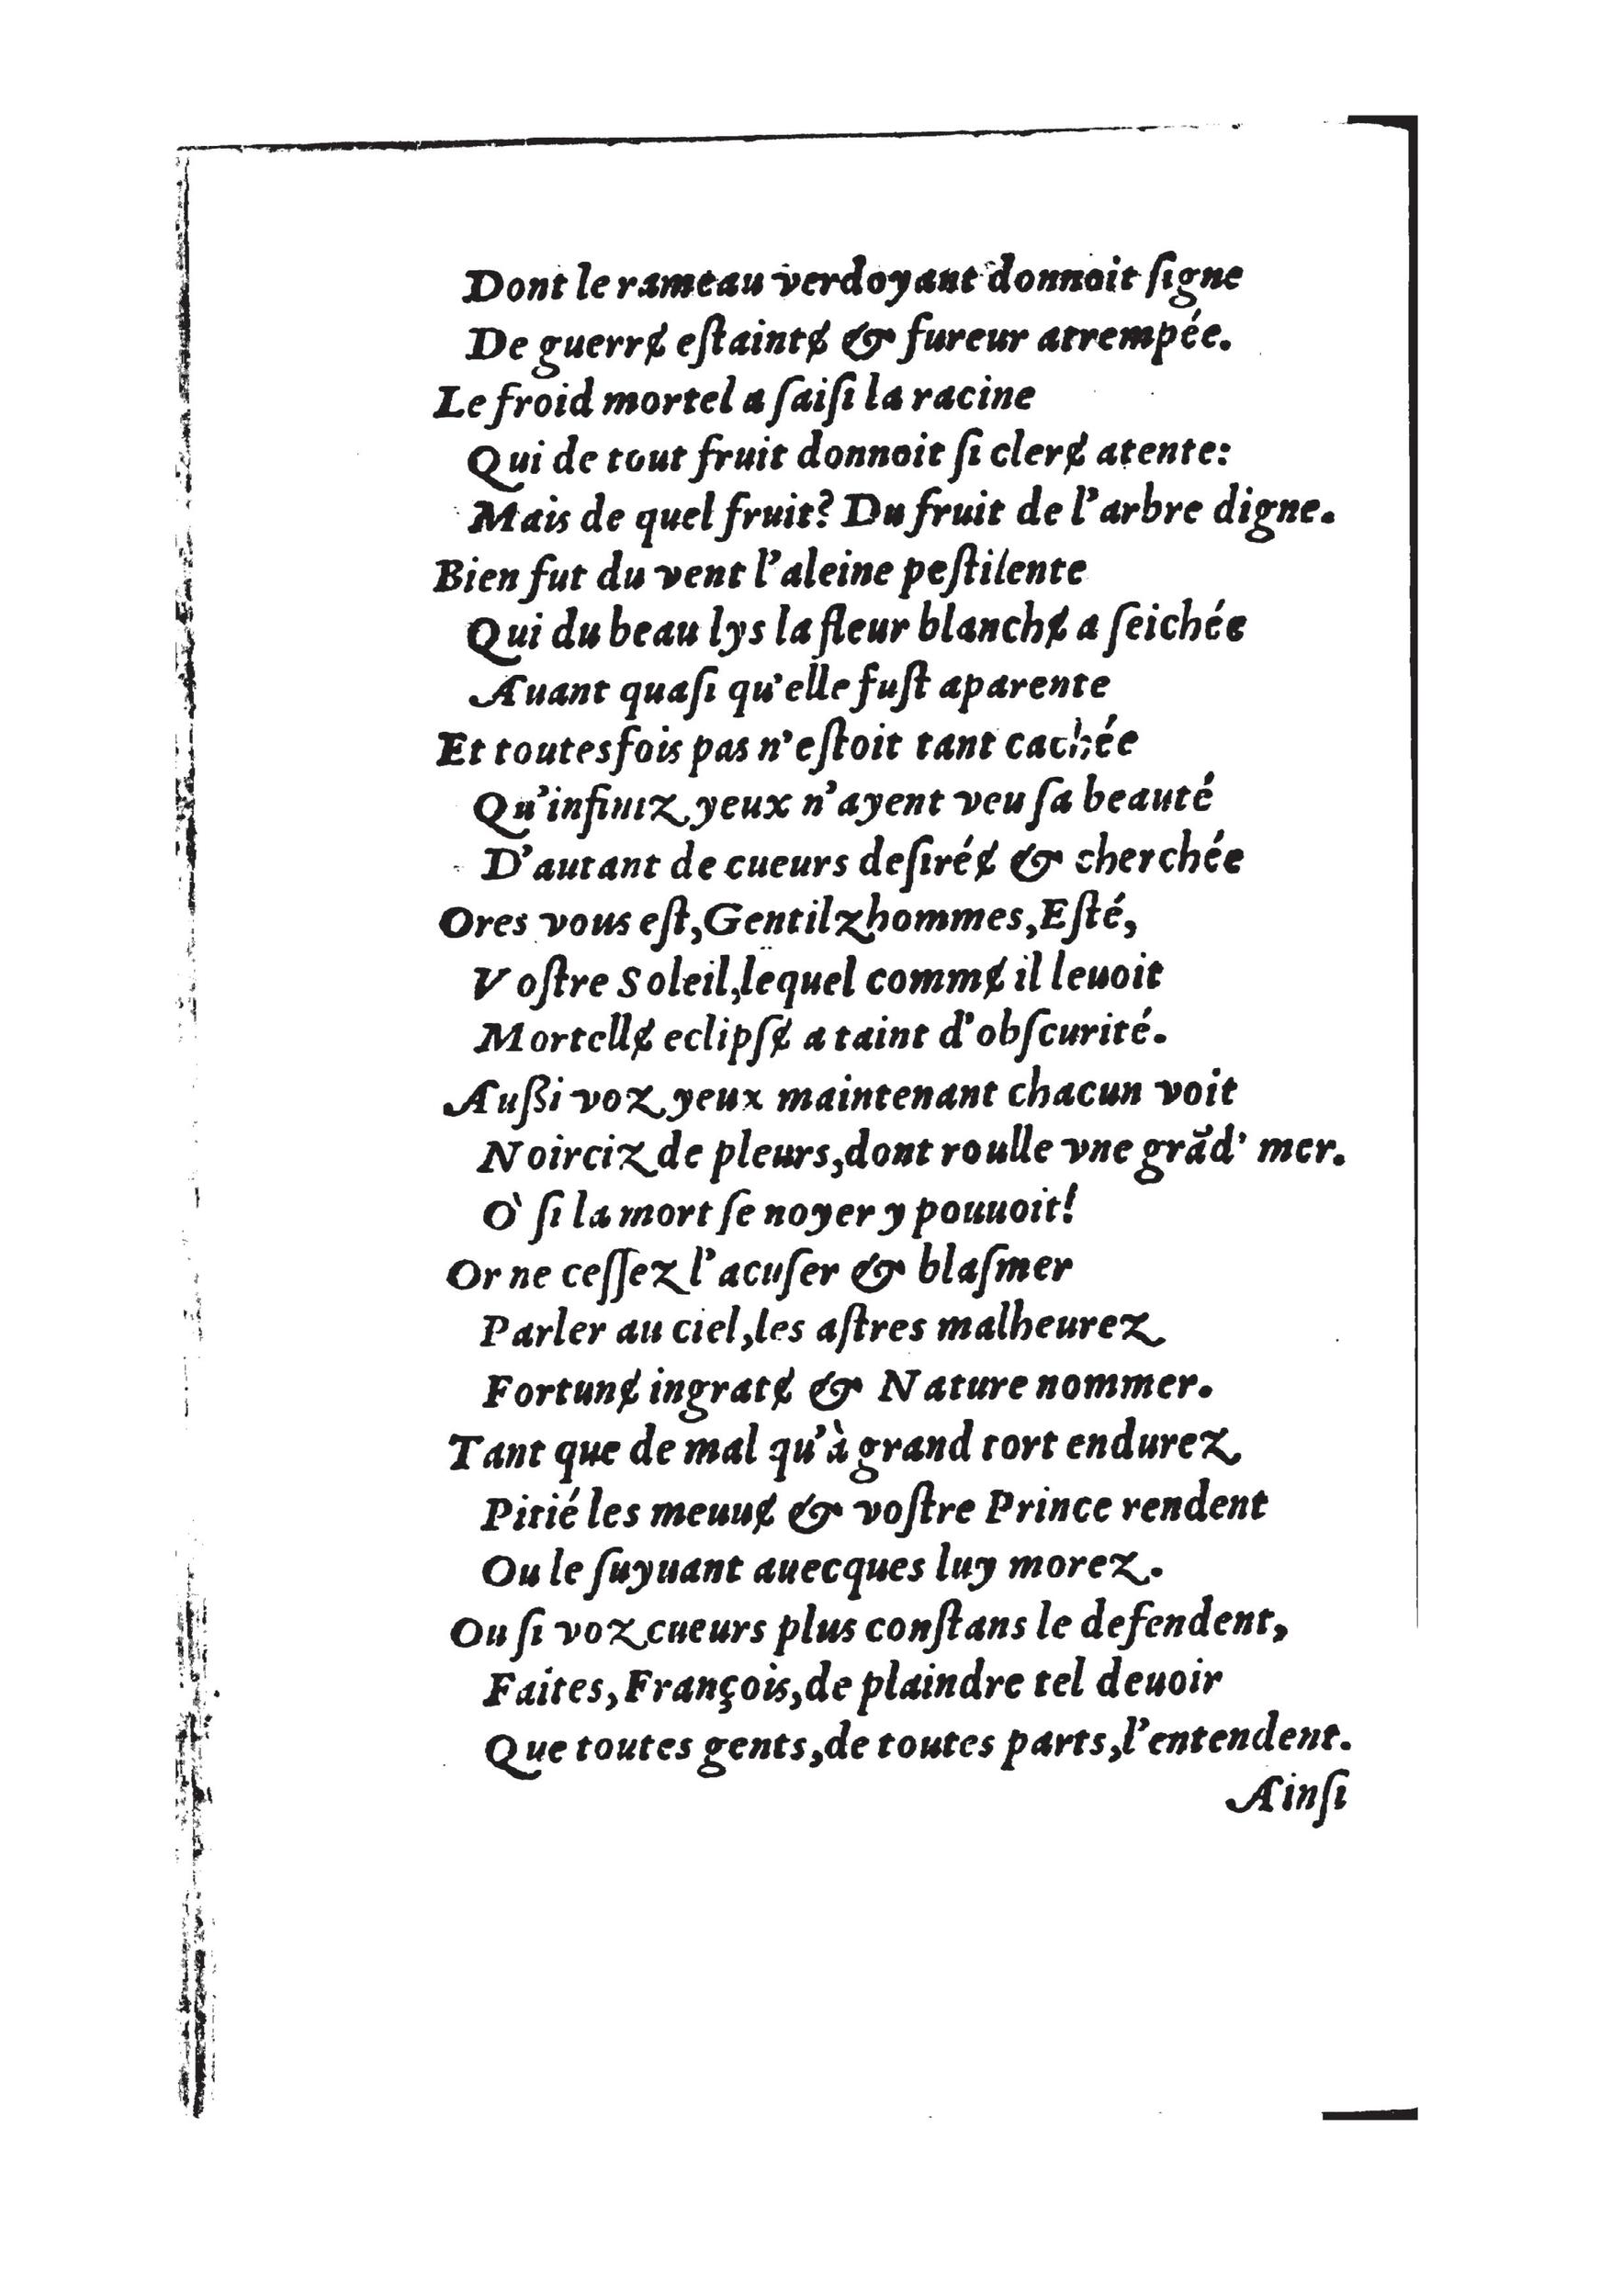 Dont le rameau verdoyant donnoit ſigne
De guerrɇ eſtaintɇ & fureur atrempée.
Le froid mortel a ſaiſi la racine
Qui de tout fruit donnoit ſi clerɇ atente:
Mais de quel fruit? Du fruit de l'arbre digne.
Bien fut du vent l'aleine peſtilente
Qui du beau lys la fleur blanchɇ a ſeichée
Auant quaſi qu'elle fuſt aparente
Et toutesfois pas n'eſtoit tant cachée
Qu'infiniz yeux n'ayent veu ſa beauté
D'autant de cueurs deſiréɇ & cherchée
Ores vous eſt, Gentilzhommes, Eſté,
Voſtre Soleil, lequel commɇ il leuoit
Mortellɇ eclipſɇ a taint d'obſcurité.
Außi voz yeux maintenant chacun voit
Noirciz de pleurs, dont roulle vne grãd' mer.
Ò ſi la mort ſe noyer y pouuoit!
Or ne ceſſez l'acuſer & blaſmer
Parler au ciel, les aſtres malheurez
Fortunɇ ingratɇ & Nature nommer.
Tant que de mal qu'à grand tort endurez
Pitié les meuuɇ & voſtre Prince rendent
Ou le ſuyuant auecques luy morez.
Ou ſi voz cueurs plus conſtans le defendent,
Faites, François, de plaindre tel deuoir
Que toutes gents, de toutes parts, l'entendent.
Ainſi